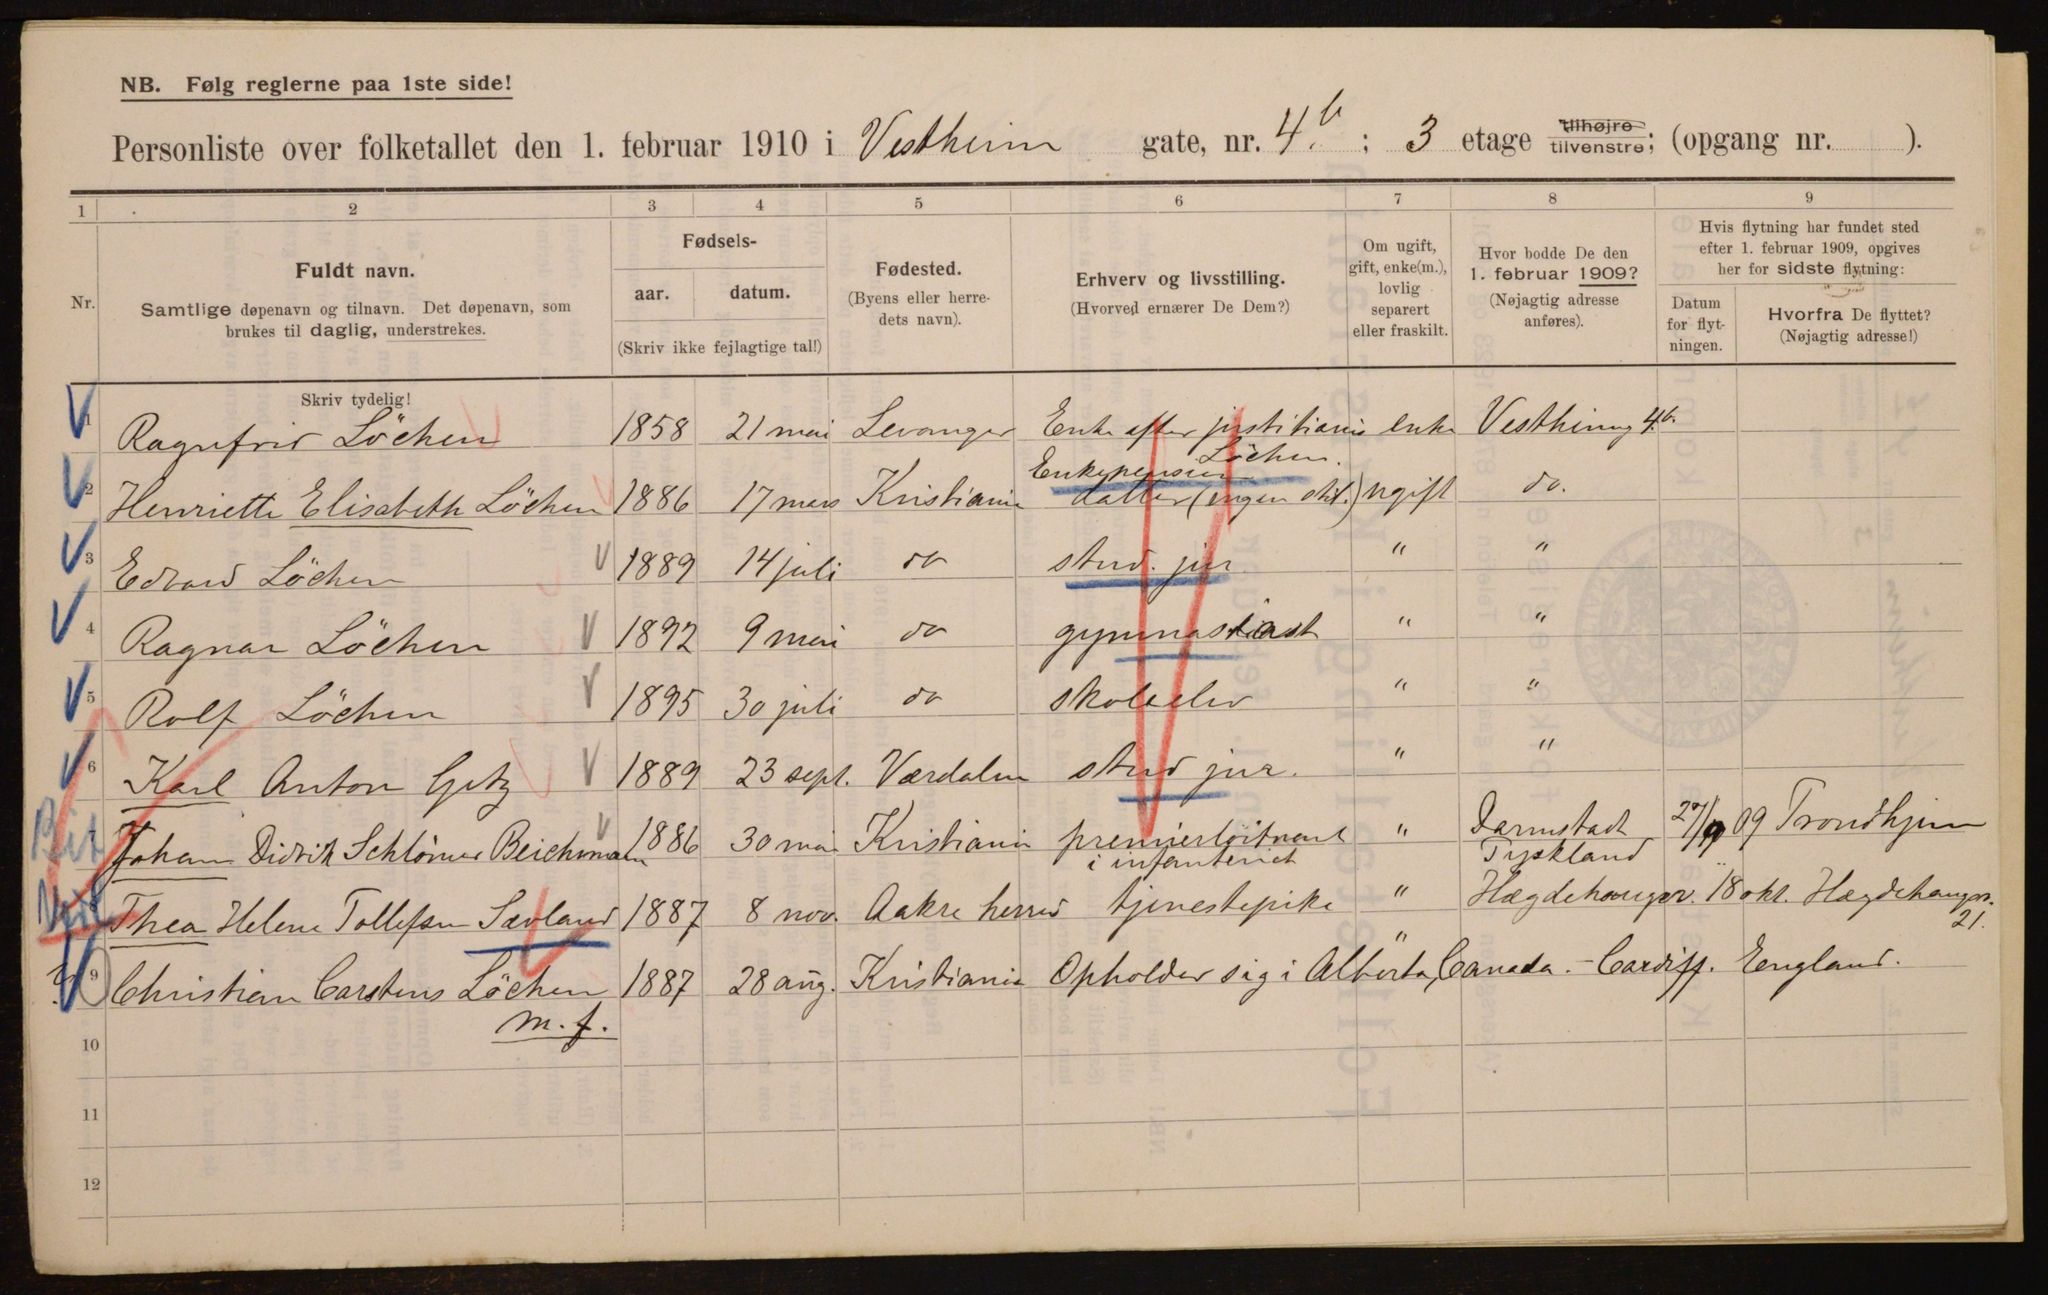 NB. Følg reglerne paa 1ste side!
Personliste over folketallet den 1. februar 1910 i Vestheim gate, nr. 4.b ; 3 etage tilhøjre tilvenstre; (opgang nr. ).
1 2 3 4 5 6 7 8 9
Nr.
Fuldt navn.
Samtlige døpenavn og tilnavn. Det døpenavn, som
brukes til daglig, understrekes.
Fødsels-
aar. datum.
(Skriv ikke fejlagtige tal!)
Fødested.
(Byens eller herre-
dets navn).
Erhverv og livsstilling.
(Hvorved ernærer De Dem?)
Om ugift,
gift, enke(m.),
lovlig
separert
eller fraskilt.
Hvor bodde De den
1. februar 1909?
(Nøjagtig adresse
anføres).
Hvis flytning har fundet sted
efter 1. februar 1909, opgives
her for sidste flytning:
Datum
for flyt-
ningen.
Hvorfra De flyttet?
(Nøjagtig adresse!)
Skriv tydelig!
1 Ragnfrid Löchen 1858 21 mai Levanger Enke efter justitiarius enke Vestheimg 4.b.
Löchen.
Enkepension
2 Henriette Elisabeth Löchen 1886 17 mars Kristiania datter (ingen stil.) ugift do.
3 Edvard Löchen 1889 14 juli do stud. jur " "
4 Ragnar Löchen 1892 9 mai do gymnasiast " "
5 Rolf Löchen 1895 30 juli do skoleelev " "
6 Karl Anton Getz 1889 23 sept. Værdalen stud jur. " "
7 Johan Didrik Schlömer Beichmann 1886 30 mai Kristiania premierløitnant " Darmstadt 27/9 09 Trondhjem
i infanteriet Tyskland
8 Thea Helene Tollefsen Sævland 1887 8 nov. Aakre herred tjenestepike " Hægdehaugsv. 18 okt. Hægdehaugsv.
21.
9 Christian Carstens Löchen 1887 28 aug. Kristiania Opholder sig i Alberta, Canada. - Cardiff. England.
m. f.
10
11
12